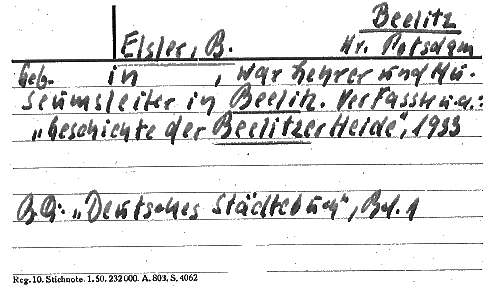 Beelitz
Elsler, B. Kr. Potsdam
Geb. in , war Lehrer und Mu-
seumsleiter in Beelitz. Verfasste u.a.:
„Geschichte der Beelitzer Heide“, 1933
B.Q.: „Deutsches Städtebuch“, Bd. 1
Reg. 10. Stichnote. 1. 50. 232000. A. 803. S. 4062